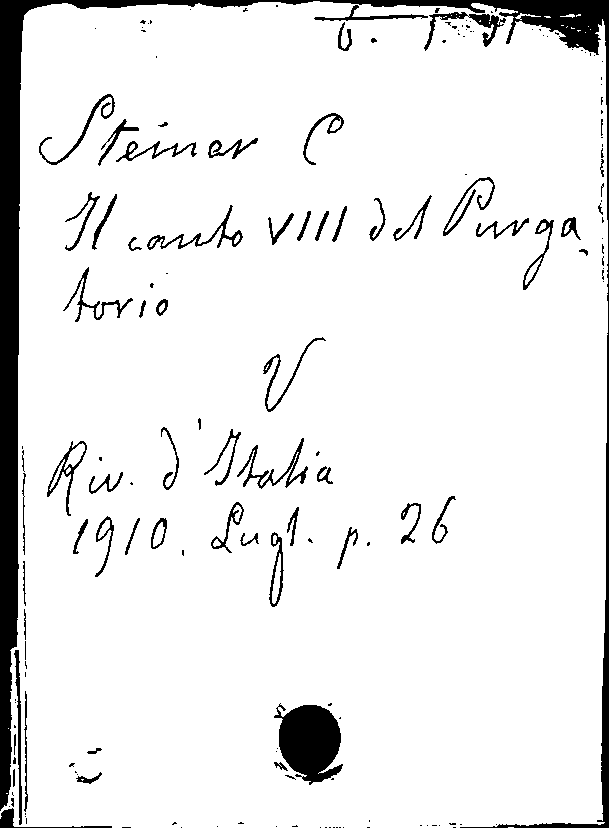 Steiner C
Il canto VIII del Purga
torio
V
Riv. d'Italia
1910. Lugl. p. 26